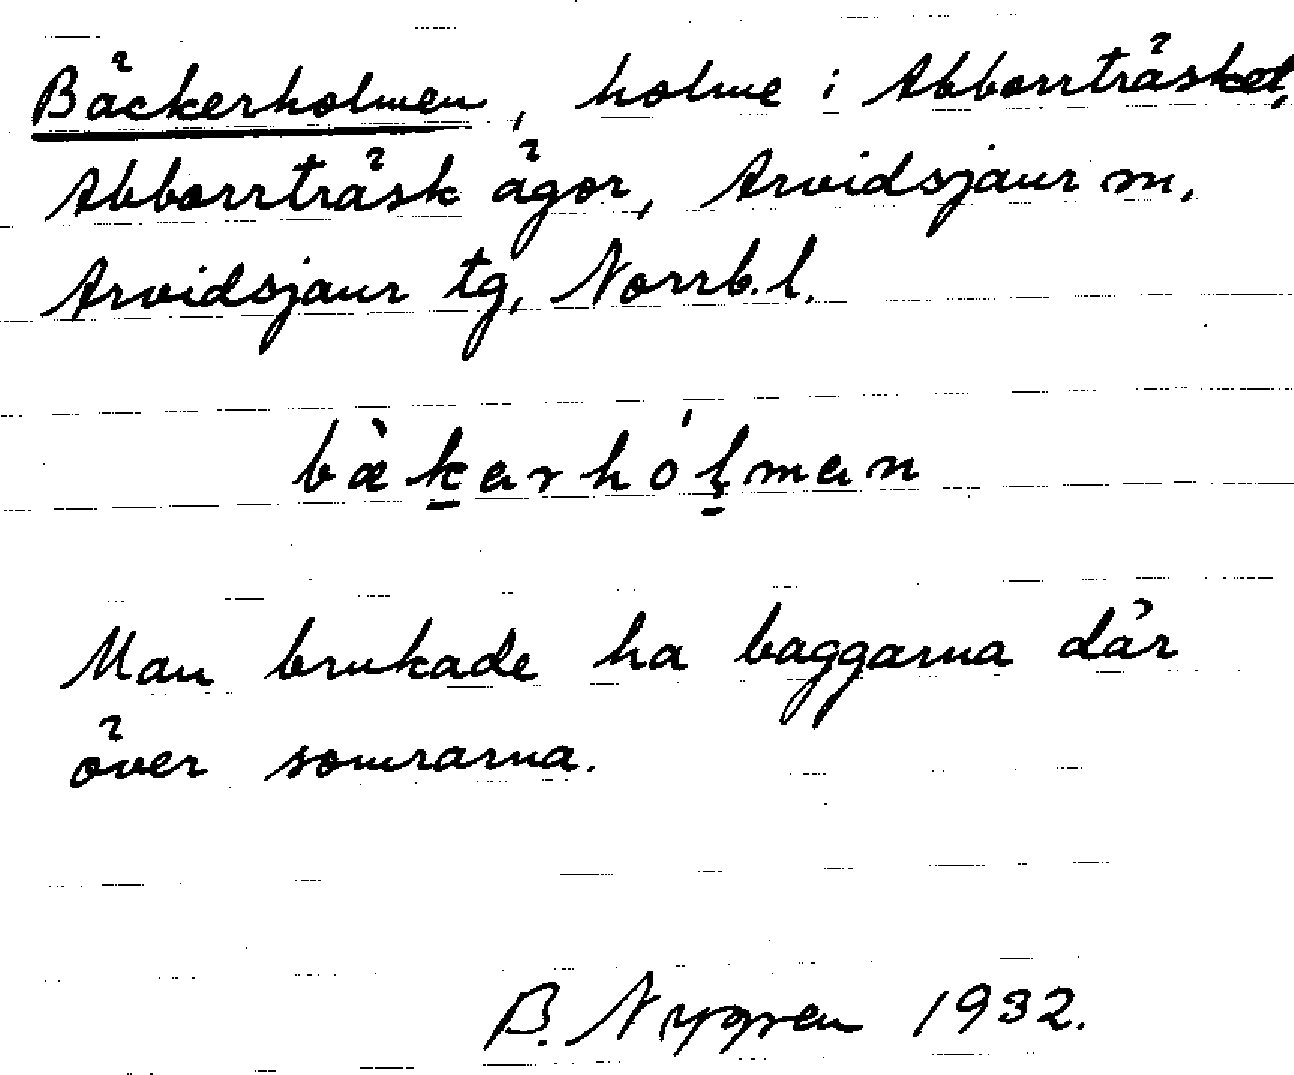 Bäckerholmen, holme i Abborrträsket,
Abborrträsk ägor, Arvidsjaur sn.
Arvidsjaur tg, Norrb. l.
bæ̀k̠arhól̠man
Man brukade ha baggarna där
över somrarna.
B. Nygren 1932.